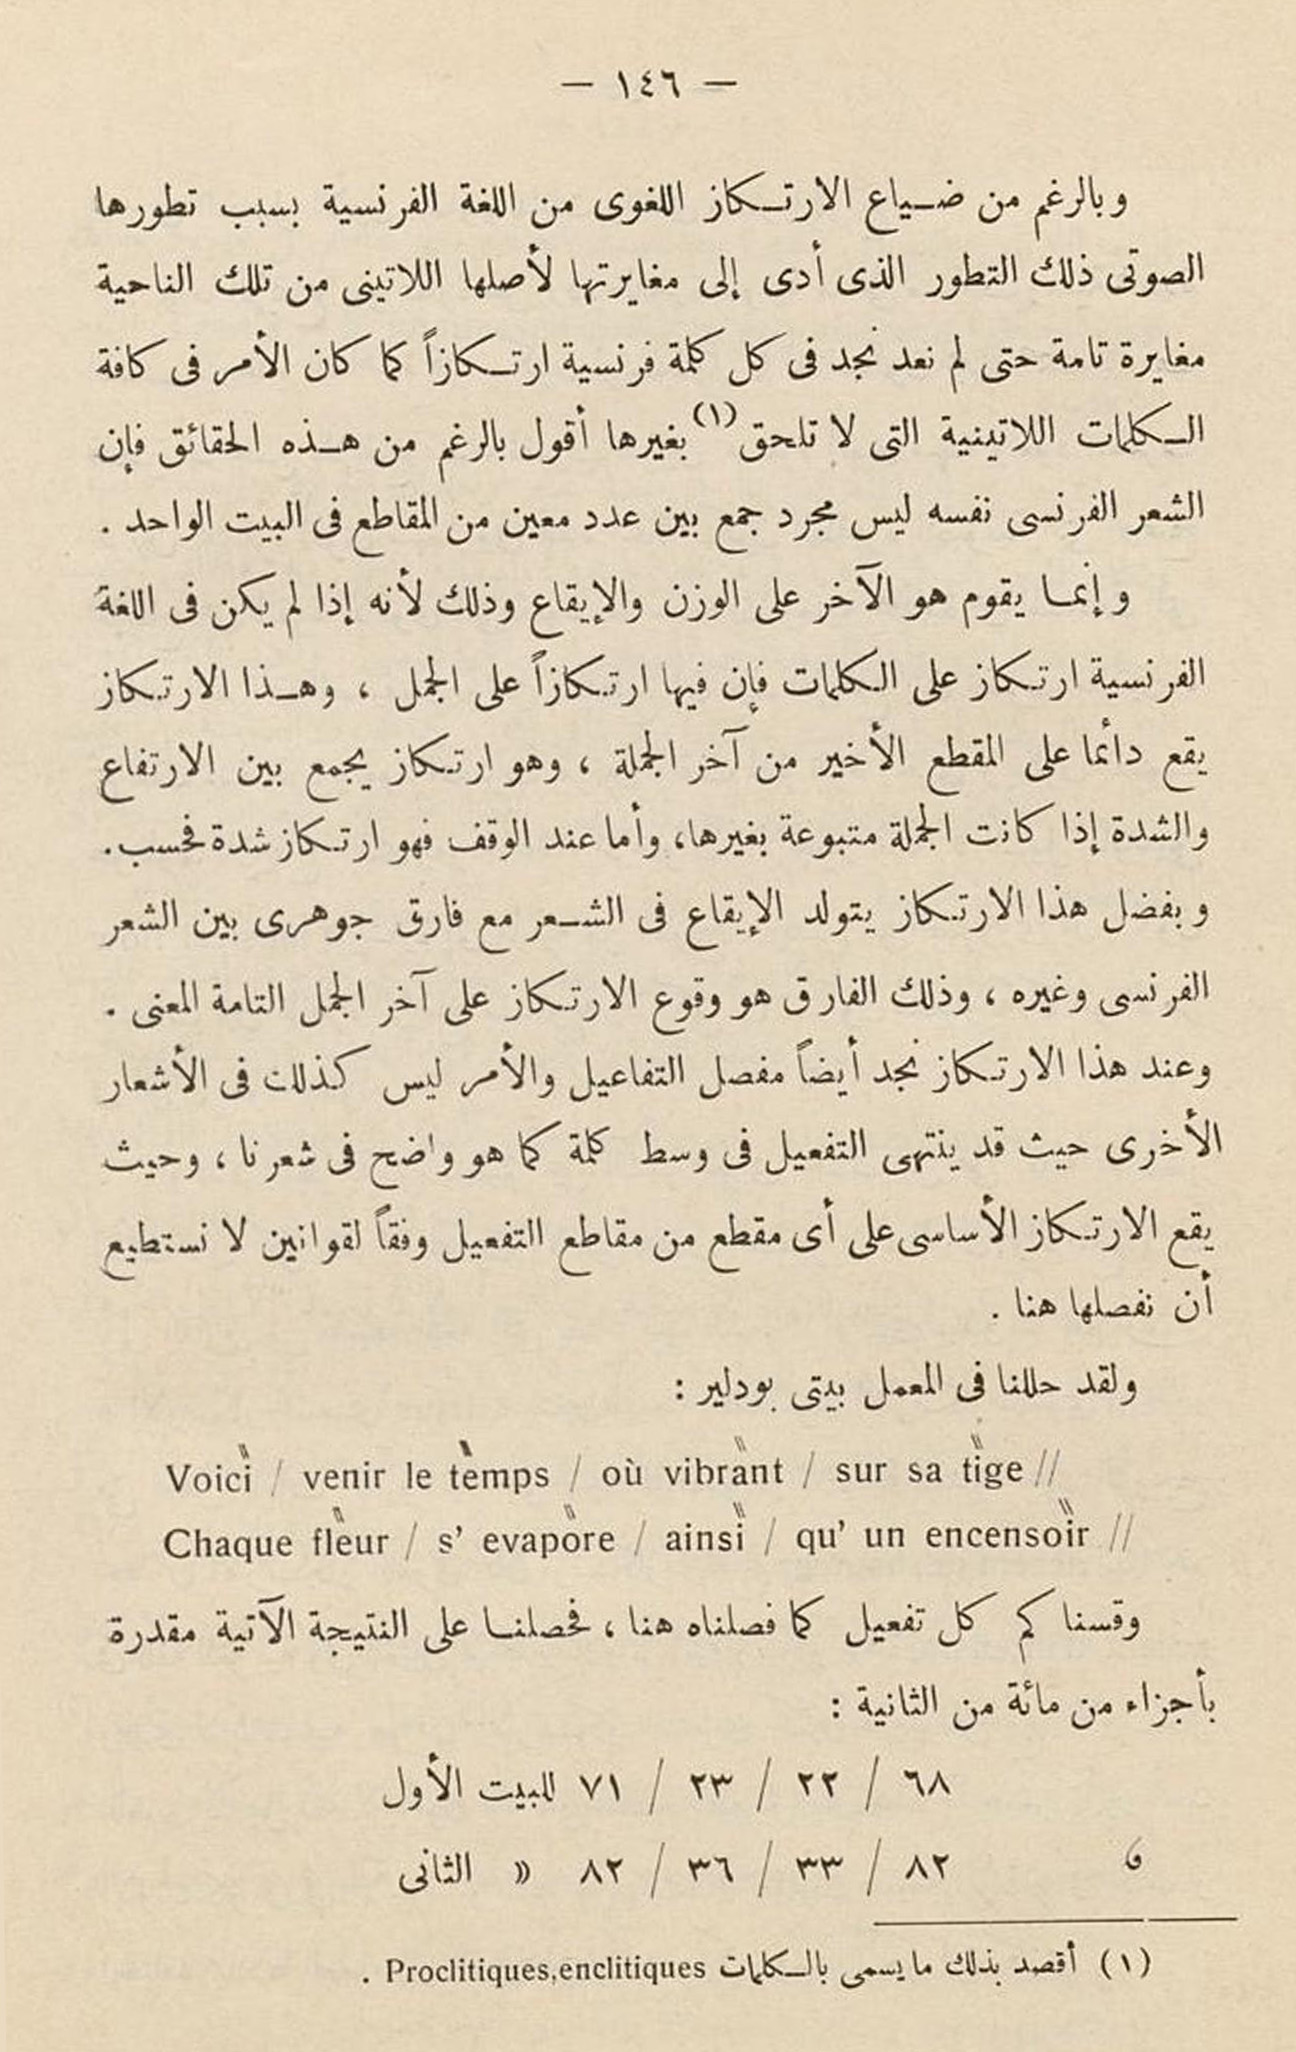 — ١٤٦ —
وبالرغم من ضياع الارتكاز اللغوى من اللغة الفرنسية بسبب تطورها
الصوتى ذلك التطور الذى أدى إلى مغايرتها لأصلها اللاتينى من تلك الناحية
مغايرة تامة حتى لم نعد نجد فى كل كلمة فرنسية ارتكازاً كما كان الأمر فى كافة
الكلمات اللاتينية التى لا تلحق (١) بغيرها أقول بالرغم من هذه الحقائق فإن
الشعر الفرنسى نفسه ليس مجرد جمع بين عدد معين من المقاطع فى البيت الواحد .
وإنما يقوم هو الآخر على الوزن والإيقاع وذلك لأنه إذا لم يكن فى اللغة
الفرنسية ارتكاز على الكلمات فإن فيها ارتكازاً على الجمل ، وهذا الارتكاز
يقع دائما على المقطع الأخير من آخر الجملة ، وهو ارتكاز يجمع بين الارتفاع
والشدة إذا كانت الجملة متبوعة بغيرها، وأما عند الوقف فهو ارتكاز شدة فحسب.
وبفضل هذا الارتكاز يتولد الإيقاع فى الشعر مع فارق جوهرى بين الشعر
الفرنسى وغيره ، وذلك الفارق هو وقوع الارتكاز على آخر الجمل التامة المعنى .
وعند هذا الارتكاز نجد أيضاً مفصل التفاعيل والأمر ليس كذلك فى الأشعار
الأخرى حيث قد ينتهى التفعيل فى وسط كلمة كما هو واضح فى شعرنا ، وحيث
يقع الارتكاز الأساسى على أى مقطع من مقاطع التفعيل وفقاً لقوانين لا نستطيع
أن نفصلها هنا .
ولقد حللنا فى المعمل بيتى بودلير :
Voici / venir le temps / où vibrant / sur sa tige //
Chaque fleur / s' evapore / ainsi / qu' un encensoir //
وقسنا كم كل تفعيل كما فصلناه هنا ، فحصلنا على النتيجة الآتية مقدرة
بأجزاء من مائة من الثانية :
٦٨ / ٢٢ / ٢٣ / ٧١ للبيت الأول
و ٨٢ / ٣٣ / ٣٦ / ٨٢ » الثانى
(١) أقصد بذلك ما يسمى بالكلمات Proclitiques,enclitiques .